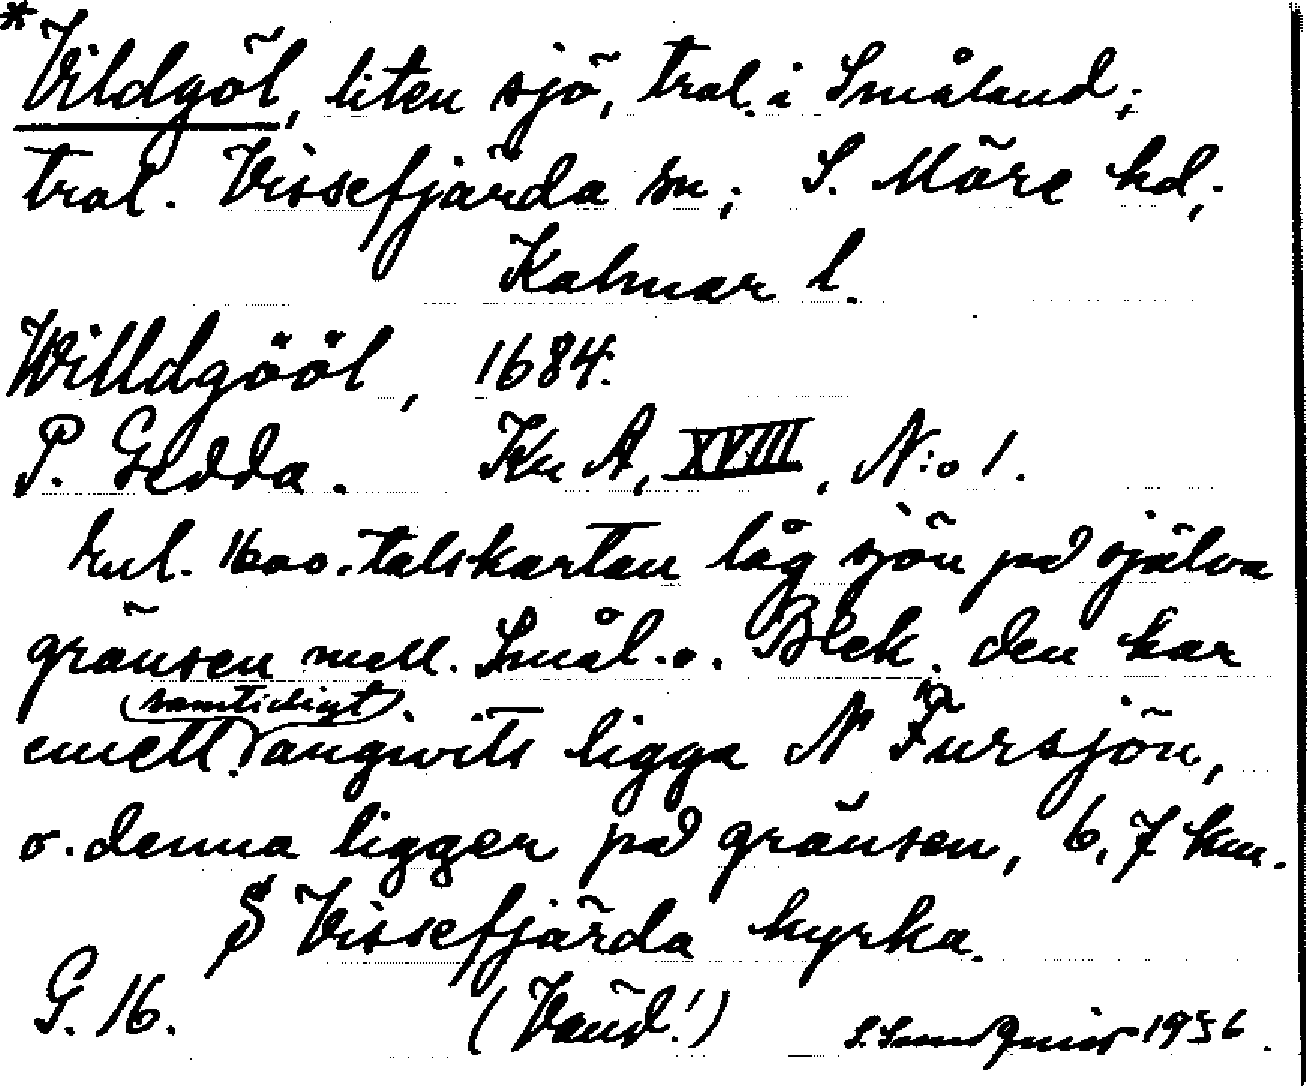 *Vildgöl, liten sjö, trol. i Småland;
trol. Vissefjärda sn; S. Möre hd,
Kalmar l.
Willdgööl, 1684.
P. Gedda. Kn A, XVIII, N:o 1.
Enl. 1600-talskartan låg sjön på själva
gränsen mell. Smål. o. Blek. den har
samtidigt
emell. angivits ligga N Fursjön,
o. denna ligger på gränsen, 6,7 km.
S Vissefjärda kyrka.
G. 16. (Vänd!) 1956